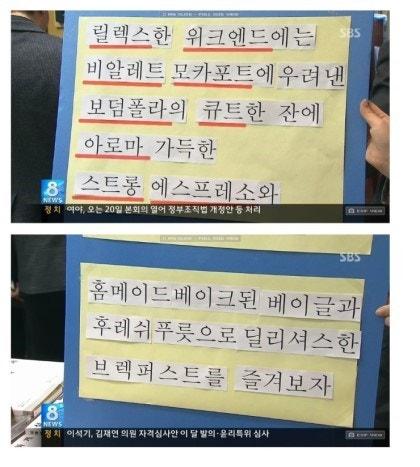 SBS
릴렉스한 위크엔드에는
비알레트 모카포트에 우려낸
보덤폴라의 큐트한 잔에
아로마 가득한
스트롱 에스프레소와
8
NEWS
정치 여야, 오는 20일 본회의 열어 정부조직법 개정안 등 처리
SBS
홈메이드베이크된 베이글과
후레쉬푸룻으로 딜리셔스한
브렉퍼스트를 즐겨보자
8
NEWS
정치 이석기, 김재연 의원 자격심사안 이 달 발의·윤리특위 심사